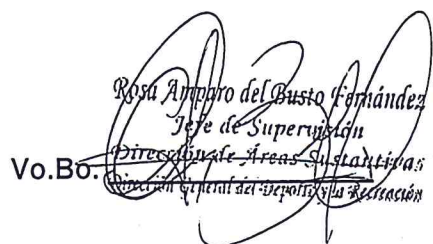 Rosa Amparo del Busto Fernández
Jefe de Supervisión
Dirección de Áreas Sustantivas
Vo.Bo.
Dirección General del Deporte y la Recreación